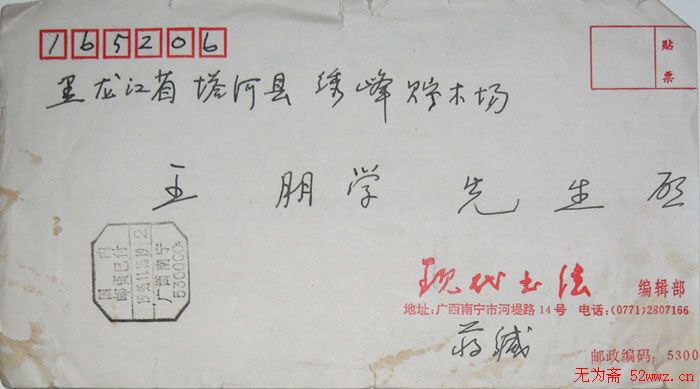 165206
贴票
黑龙江省塔河县绣峰贮木场
王朋学先生启
国内
邮资已付
广西南宁
530000
现代书法 编辑部
地址:广西南宁市河堤路14号 电话:(0771)2807166
蒋缄
邮政编码:5300
无为斋 52wwz.cn